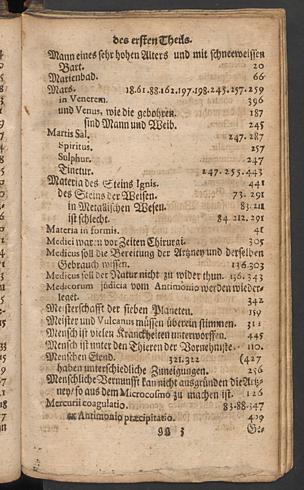 des ersten Theils.
Mann eines sehr hohen Alters und mit schneeweissen
Bart. 20
Marienbad. 66
Mars. 18.61.88.162.197.198.245.257.259
in Venerem. 396
und Venus, wie die gebohren. 187
sind Mann und Weib. 245
Martis Sal. 247.287
Spiritus. 257
Sulphur. 247
Tinctur. 247.255.443
Materia des Steins Ignis. 441
des Steins der Weisen. 73.291
in Metallischen Wesen. 83.211
ist schlecht. 84.212.291
Materia in formis. 41
Medici waren vor Zeiten Chirurgi. 305
Medicus soll die Bereitung der Artzney und derselben
Gebrauch wissen. 136.303
Medicus soll der Natur nicht zu wider thun. 136.343
Medicorum judicia vom Antimonio werden wieder-
leget. 342
Meisterschafft der sieben Planeten. 159
Meister und Vulcanus müssen überein stimmen. 311
Mensch ist vielen Kranckheiten unterworffen. 445
Mensch ist unter den Thieren der Vornehmste. 110.
Menschen Elend. 321.322 (427
haben unterschiedliche Zuneigungen. 236
Menschliche Vernunfft kan nicht ausgründen die Artz-
ney/ so aus dem Microcosmo zu machen ist. 126
Mercurii coagulatio. 83.88.347
ex Antimonio præcipitatio. 409